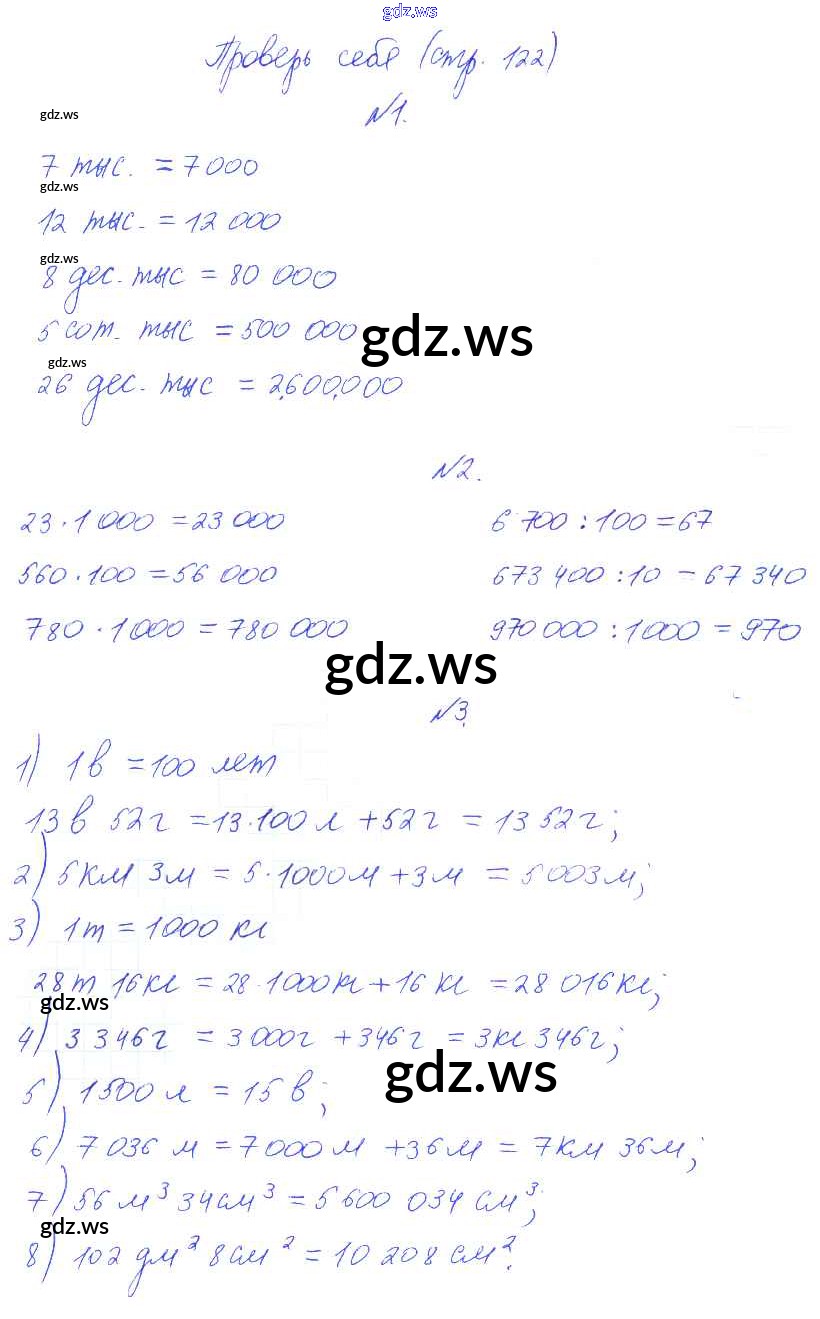 gdz.ws
Проверь себя (стр. 122)
№1.
gdz.ws
7 тыс. = 7 000
gdz.ws
12 тыс. = 12 000
gdz.ws
8 дес. тыс = 80 000
5 сот. тыс = 500 000
gdz.ws
gdz.ws
26 дес. тыс = 2,600,000
№2.
23 · 1 000 = 23 000 6 700 : 100 = 67
560 · 100 = 56 000 673 400 : 10 = 67 340
780 · 1 000 = 780 000 970 000 : 1 000 = 970
gdz.ws
№3
1) 1 в = 100 лет
13 в 52 г = 13 · 100 л + 52 г = 13 52 г;
2) 5 км 3 м = 5 · 1000 м + 3 м = 5 003 м;
3) 1 т = 1000 кг
28 т 16 кг = 28 · 1000 кг + 16 кг = 28 016 кг;
gdz.ws
4) 3 346 г = 3 000 г + 346 г = 3 кг 346 г;
gdz.ws
5) 1500 л = 15 в;
6) 7 036 м = 7 000 м + 36 м = 7 км 36 м;
7) 56 м³ 34 см³ = 5 600 034 см³;
gdz.ws
8) 102 дм² 8 см² = 10 208 см².